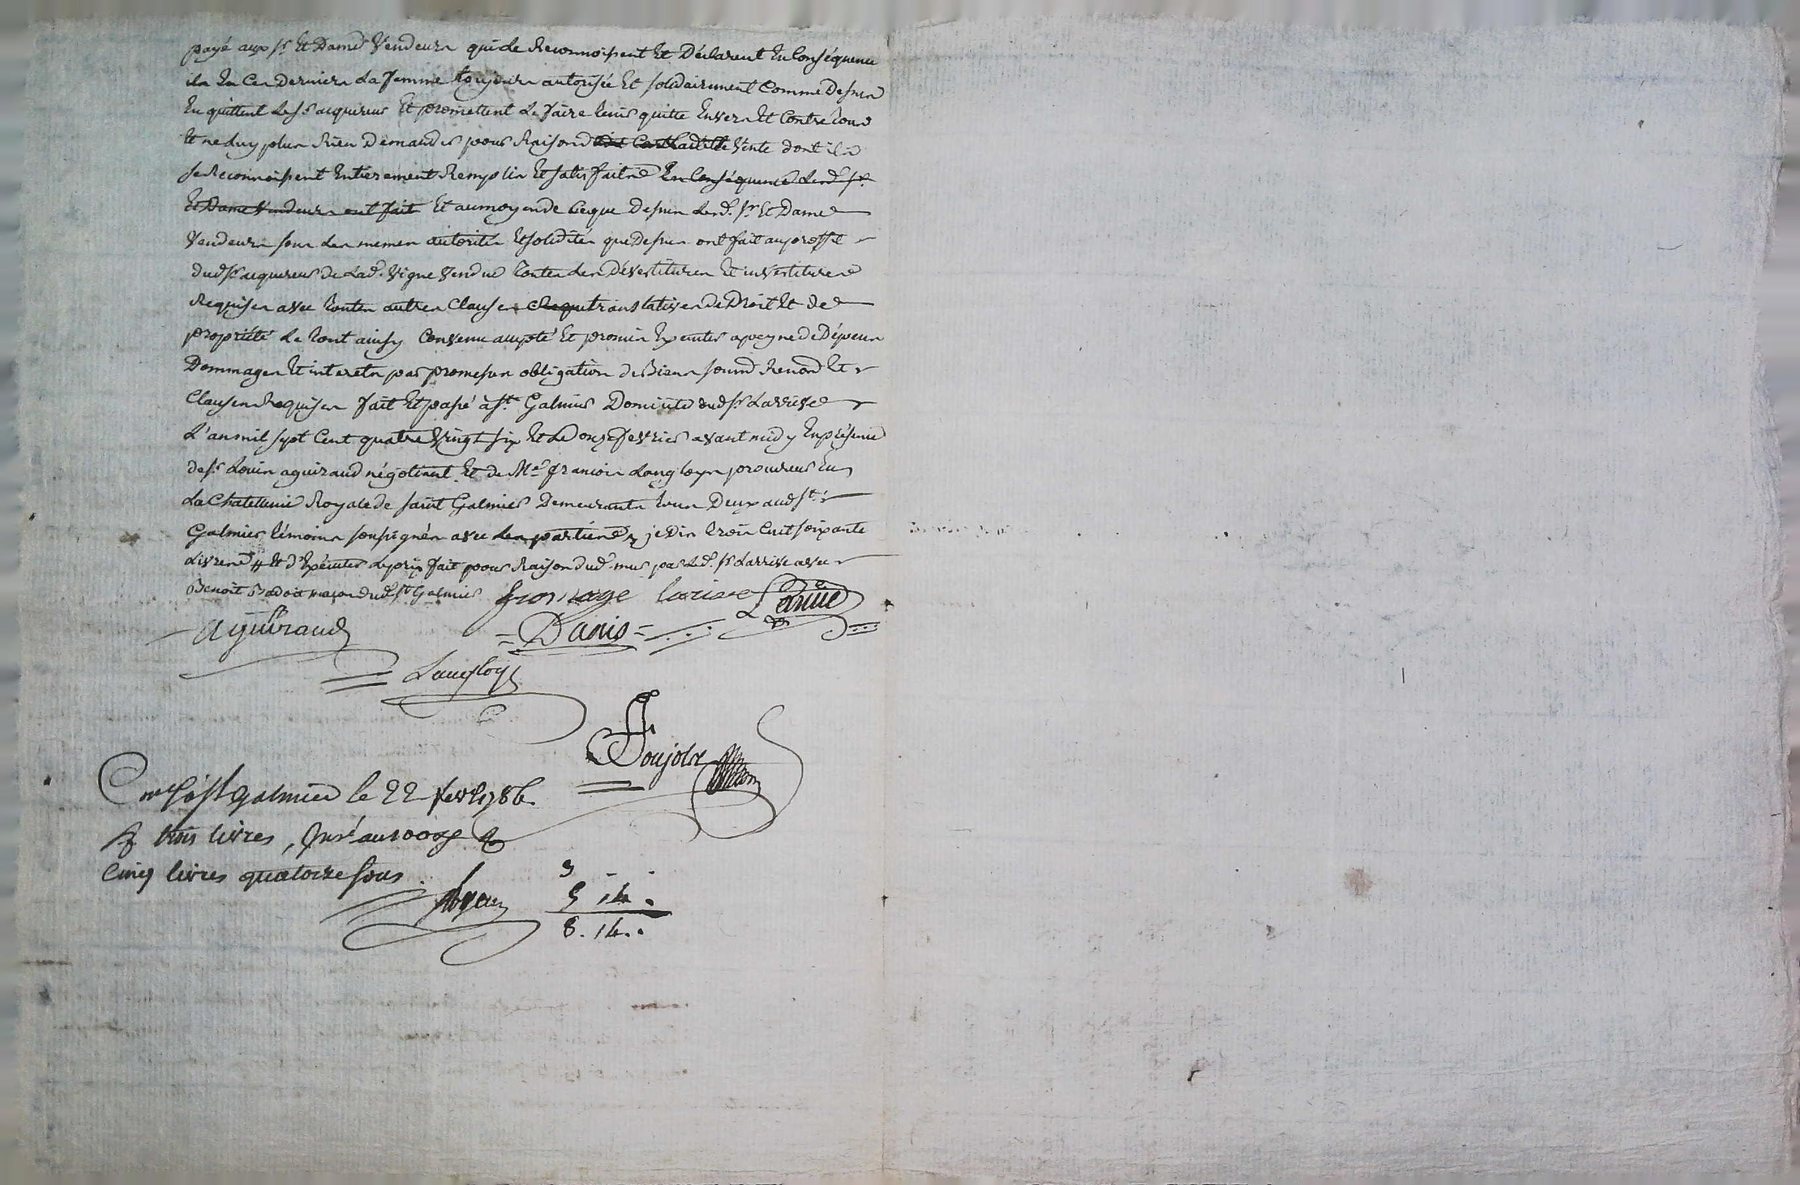 payé aux sr. Et Dame Vendeurs qui le Reconnoissent Et Déclarent En Conséquence
ils En Ces Derniers La femme toujours autorisée Et solidairement Comme Dessus
En quittent Led. sr. acquereur Et promettent Le faire tenir quitte Envers Et Contre tous
Et ne luy plus Rien Demander pour Raison de Ladite Vente dont ils
se Reconnoissent Entierement Remplis Et satisfaits En Conséquence Lesd. sr.
Et Dame Vendeurs ont fait Et au moyen de Ce que Dessus Lesd. sr. Et Dame
Vendeurs sous Les memes autorités Et solidités que Dessus ont fait au proffit
dud. sr. acquereur de Lad. Vigne Vendue toutes Les Dévestitures Et investitures
Requises avec toutes autres Clauses translatives de Droit Et de
propriété Le tout ainsy Convenu accepté Et promis Executer a peyne de Dépens
Dommages Et interets par promesses obligation de Biens soumis Renond. Et
Clauses Requises fait Et passé à St. Galmier Domicile dud. sr. Larrive
L'an mil sept Cent quatre Vingt six Et Le onze fevrier avant midy En présence
de sr. Louis aguiraud négotiant Et de Me. françois Langloys procureur En
La Chatellenie Royale de saint Galmier Demeurants tous Deux aud. St.
Galmier témoins soussignés avec Les parties je dis trois Cent soixante
Livres Et d'Executer Le prix fait pour Raison dud. mur par Led. sr. Larrive avec
Benoit Badoit maçon dud. St. Galmier fromage larive Larrive
Aguiraud = Danis =
Langloys
Poujolx
Con. lé à St galmier le 22 fevr. 1786
R trois livres, Insé. au 100e
Cinq livres quatorze sous.
3
5 14 .
8 . 14 . .